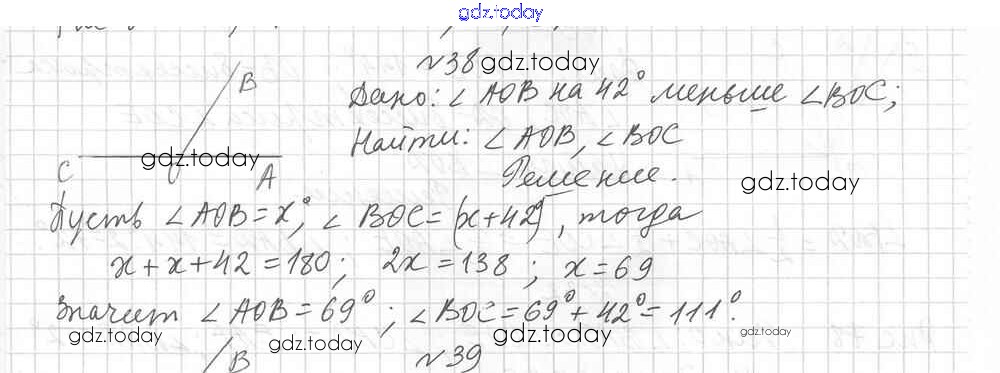 gdz.today
№38 gdz.today
B
Дано: ∠AOB на 42° меньше ∠BOC;
Найти: ∠AOB, ∠BOC
C gdz.today A
Решение. gdz.today
Пусть ∠AOB = x°, ∠BOC = (x+42)°, тогда
x + x + 42 = 180; 2x = 138; x = 69
Значит ∠AOB = 69°; ∠BOC = 69° + 42° = 111°.
gdz.today gdz.today gdz.today gdz.today
B №39